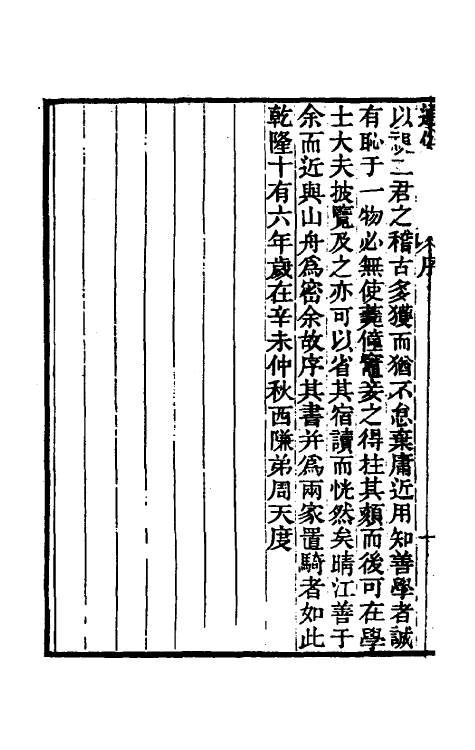 通俗
序
十
以視二君之稽古多獲而猶不怠棄庸近用知善學者誠
有恥于一物必無使薨僮竈妾之得柱其頰而後可在學
士大夫披覽及之亦可以省其宿讀而恍然矣晴江善于
余而近與山舟為密余故序其書并為兩家置騎者如此
乾隆十有六年歲在辛未仲秋西隒弟周天度